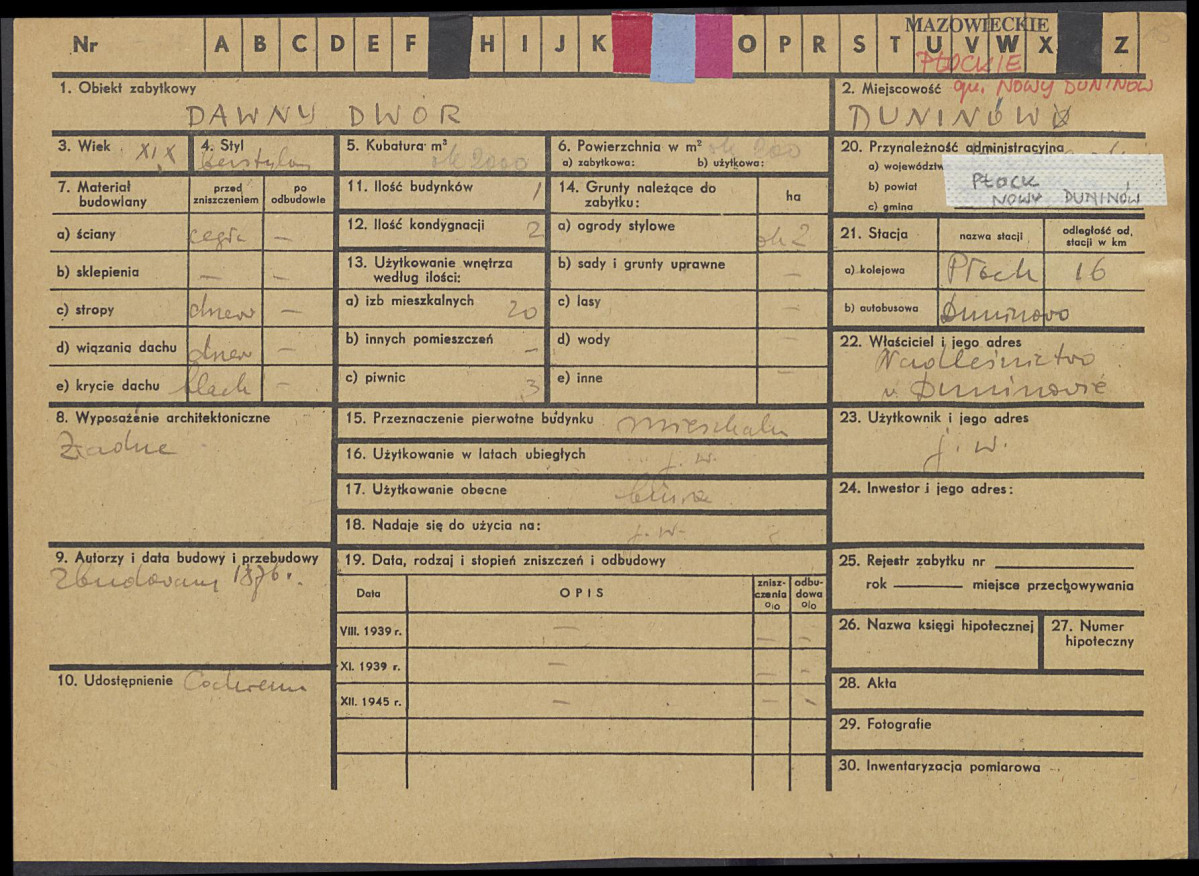 MAZOWIECKIE
Nr A B C D E F H I J K O P R S T U V W X Z
PŁOCKIE
1. Obiekt zabytkowy
DAWNY DWÓR
2. Miejscowość gm. NOWY DUNINÓW
DUNINÓW
3. Wiek XIX
4. Styl
5. Kubatura m³ ok 2000
6. Powierzchnia w m² ok 200
a) zabytkowa: b) użytkowa:
20. Przynależność administracyjna
a) województw
b) powiat
c) gmina
PŁOCK
NOWY DUNINÓW
7. Materiał budowlany
przed zniszczeniem
po odbudowie
a) ściany cegła —
b) sklepienia — —
c) stropy drew —
d) wiązania dachu drew —
e) krycie dachu blach —
11. Ilość budynków 1
12. Ilość kondygnacji 2
13. Użytkowanie wnętrza
według ilości:
a) izb mieszkalnych 20
b) innych pomieszczeń —
c) piwnic 3
14. Grunty należące do
zabytku:
ha
a) ogrody stylowe ok 2
b) sady i grunty uprawne —
c) lasy —
d) wody —
e) inne
21. Stacja
nazwa stacji
odległość od,
stacji w km
a) kolejowa Płock 16
b) autobusowa Duninowo
22. Właściciel i jego adres
Nadleśnictwo
w Duninowie
8. Wyposażenie architektoniczne
Żadne
15. Przeznaczenie pierwotne budynku mieszkaln
16. Użytkowanie w latach ubiegłych j. w.
17. Użytkowanie obecne biura
18. Nadaje się do użycia na: j. w.
23. Użytkownik i jego adres
j. w.
24. Inwestor i jego adres:
9. Autorzy i data budowy i przebudowy
Zbudowany 1876 r.
10. Udostępnienie
19. Data, rodzaj i stopień zniszczeń i odbudowy
Data
OPIS
znisz-
czenia
o/o
odbu-
dowa
o/o
VIII. 1939 r. — — —
XI. 1939 r. — — —
XII. 1945 r. — — —
25. Rejestr zabytku nr
rok miejsce przechowywania
26. Nazwa księgi hipotecznej
27. Numer
hipoteczny
28. Akta
29. Fotografie
30. Inwentaryzacja pomiarowa